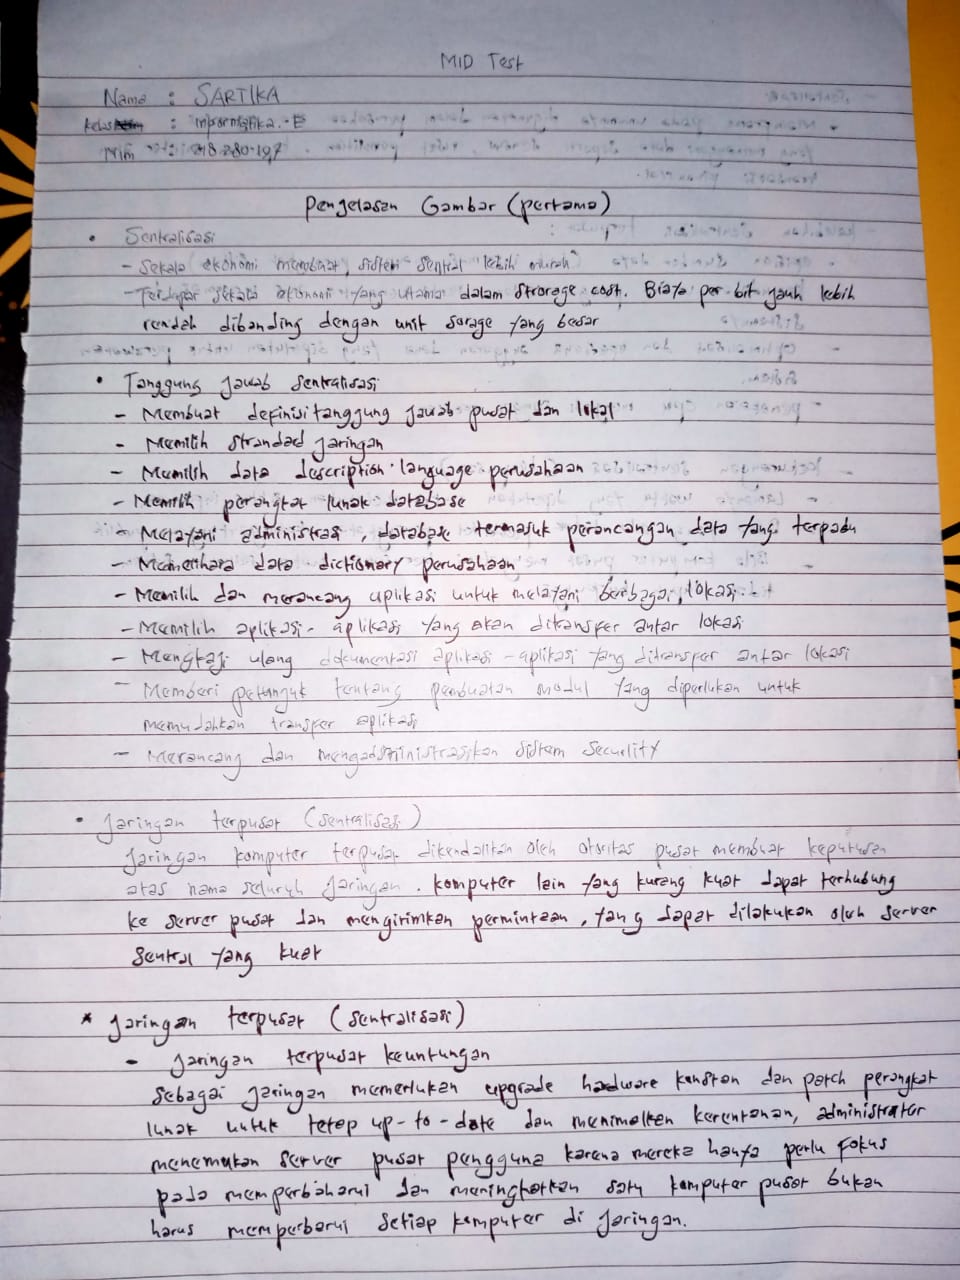 MID Test
Nama : SARTIKA
Kelas : Informatika.-E
Nim : 218 280 197
Pengelasan Gambar (pertama)
• Sentralisasi
- Sekala ekonomi membuat sistem sentral lebih murah
- Terdapat sekala ekonomi yang utama dalam strorage cost. Biaya per bit jauh lebih
rendah dibanding dengan unit sorage yang besar
• Tanggung jawab sentralisasi
- Membuat definisi tanggung jawab pusat dan lokal
- Memilih strandad jaringan
- Memilih data description language perusahaan
- Memilih perangkat lunak database
- Melayani administrasi database termasuk perancangan data yang terpadu
- Memelihara data dictionary perusahaan
- Memilih dan merancang aplikasi untuk melayani berbagai lokasi.
- Memilih aplikasi- aplikasi yang akan ditransfer antar lokasi
- Mengkaji ulang dokumentasi aplikasi - aplikasi yang ditransfer antar lokasi
- Memberi petunjuk tentang pembuatan modul yang diperlukan untuk
memudahkan transfer aplikasi
- Merancang dan mengadministrasikan sistem security
• Jaringan terpusat (sentralisasi)
Jaringan komputer terpusat dikendalikan oleh otoritas pusat membuat keputusan
atas nama seluruh jaringan. komputer lain yang kurang kuat dapat terhubung
ke server pusat dan mengirimkan permintaan, yang dapat dilakukan oleh server
sentral yang kuat
* Jaringan terpusat (sentralisasi)
- Jaringan terpusat keuntungan
sebagai jaringan memerlukan upgrade hardware konstan dan patch perangkat
lunak untuk tetap up-to-date dan menimalken kerentanan, administrator
menemukan server pusat pengguna karena mereka hanya perlu fokus
pada memperbaharui dan meningkatkan satu komputer pusat bukan
harus memperbarui setiap komputer di jaringan.